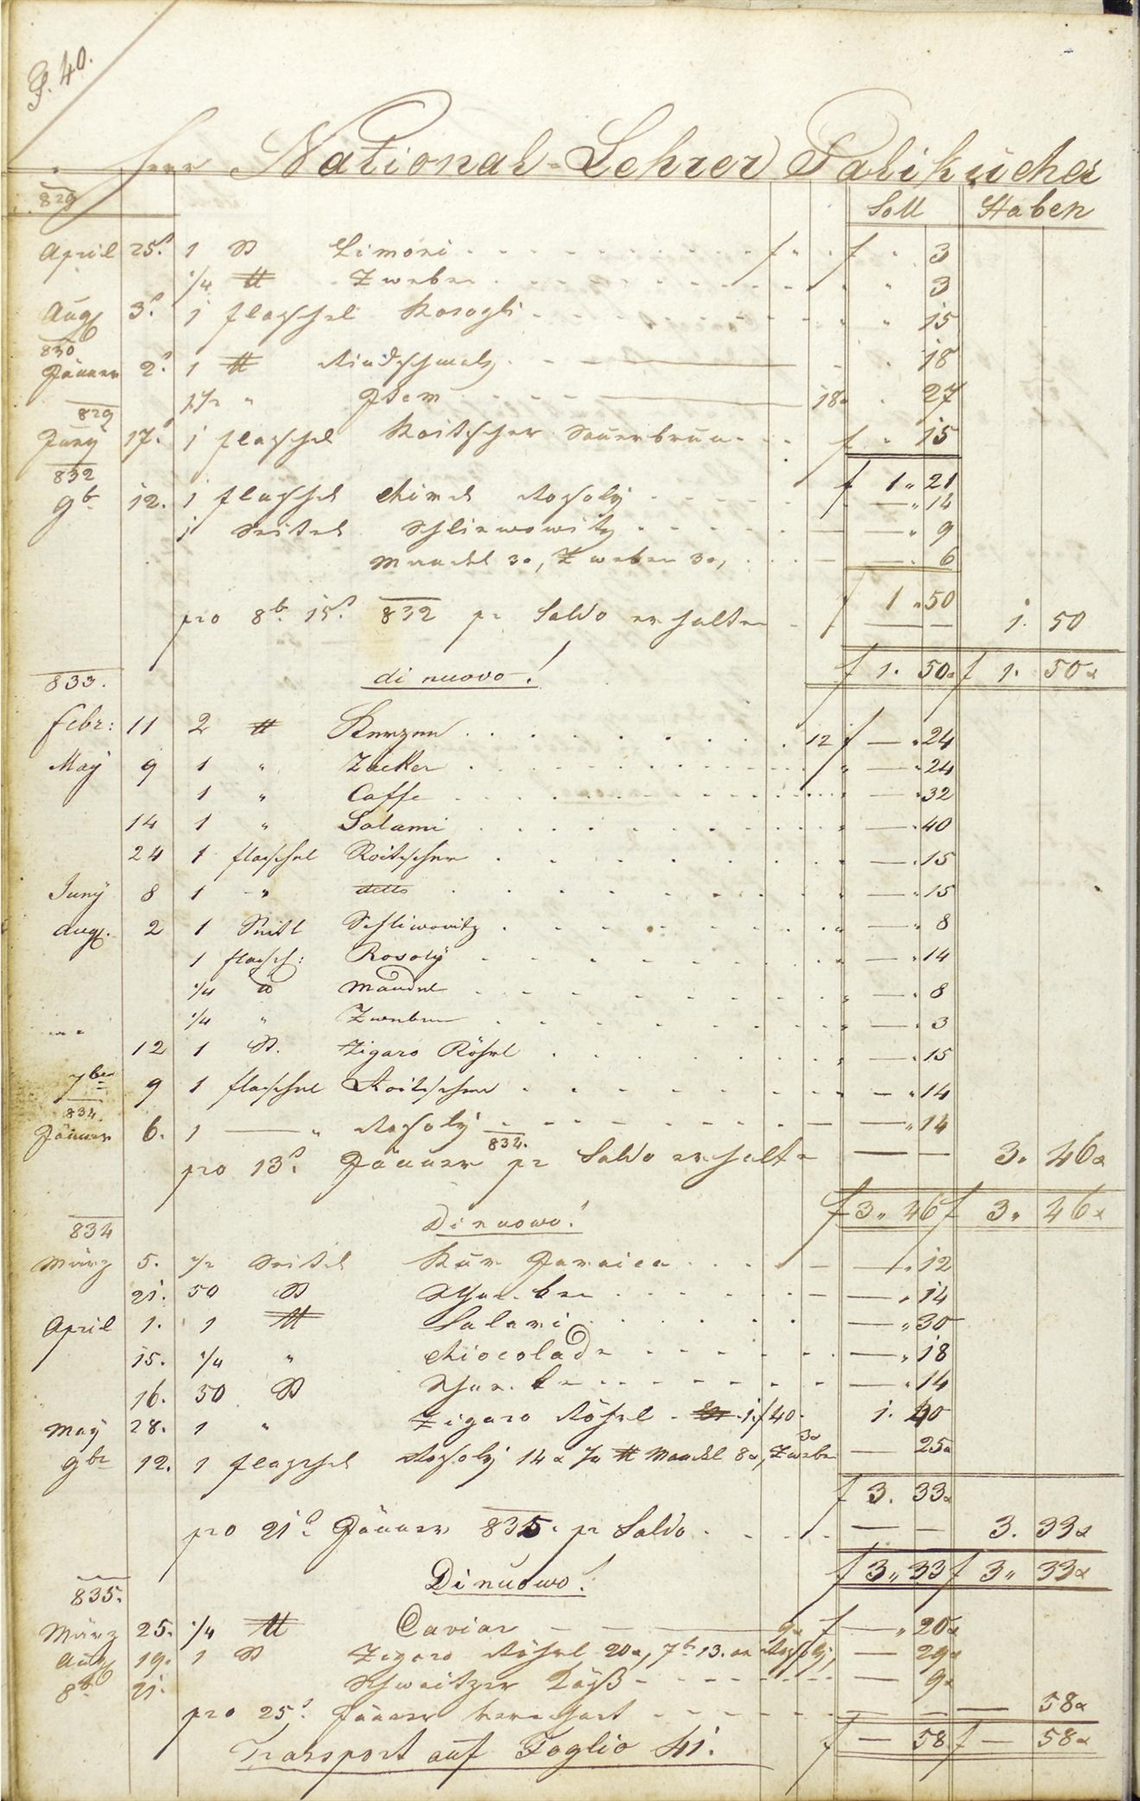 F. 40.
Herr National-Lehrer Palikucher
829 Soll Haben
April 25. 1 St Limoni f " 3
1/4 ℔ Zweben " " 3
Aug 3. 1 flaschel Rosogli " " 15
830
Jänner 2. 1 ℔ Rindschmalz " 18
1 1/2 " Idem 18x " 27
829
Juny 17. 1 flaschel Roitscher Sauerbrun f " 15
832 f 1 " 21
9b 12. 1 flaschel Rosoly — " 14
1 Seitel Schliwowitz — " 9
Mandel 3x, Zweben 3x, — " 6
f 1 " 50
pro 8b 15. 832 pr Saldo erhalten — — 1. 50
f 1. 50x f 1. 50x
833. di nuovo!
Febr: 11 2 ℔ Kerzen 12 f — " 24
May 9 1 " Zucker " — " 24
1 " Caffe " — " 32
14 1 " Salami " — " 40
24 1 flaschel Roitscher " — " 15
Juny 8 1 " detto " — " 15
Aug. 2 1 Seitl Schliwovitz " — " 8
1 flasch: Rosoly " — " 14
1/4 ℔ Mandel " — " 8
1/4 " Zweben " — " 3
12 1 St. Zigaro Röhrl " — " 15
7ber 9 1 flaschel Roitscher — " 14
834
Jänner 6. 1 — " Rosoly — " 14
pro 13. Jänner 834. pr Saldo erhalten — — 3. 46x
f 3 " 46 f 3 " 46x
834 Di nuowo!
März 5. 1/2 Seitel Rum Jamaica — " 12
21. 50 St — " 14
April 1. 1 ℔ Salami — " 30
15. 1/4 " Chiocolade — " 18
16. 50 St — " 14
May 28. 1 " Zigaro Röhrl 1f 40 1. 40
9br 12. 1 flaschel Rosoly 14x 1/4 ℔ Mandel 8x, Zweben 3x — 25x
f 3. 33x
pro 21. Jänner 835. pr Saldo — — 3. 33x
f 3 " 33 f 3 " 33x
835. Di nuowo!
März 25. 1/4 ℔ Caviar f — " 20x
Aug 19. 1 St Zigaro Röhrl 20x, 7b 13. Rosoly 9x — 29x
8b 21. Schweitzer Käß — 9x
pro 25. Jänner — — — 58x
f — 58 f — 58x
Transport auf Foglio 41.